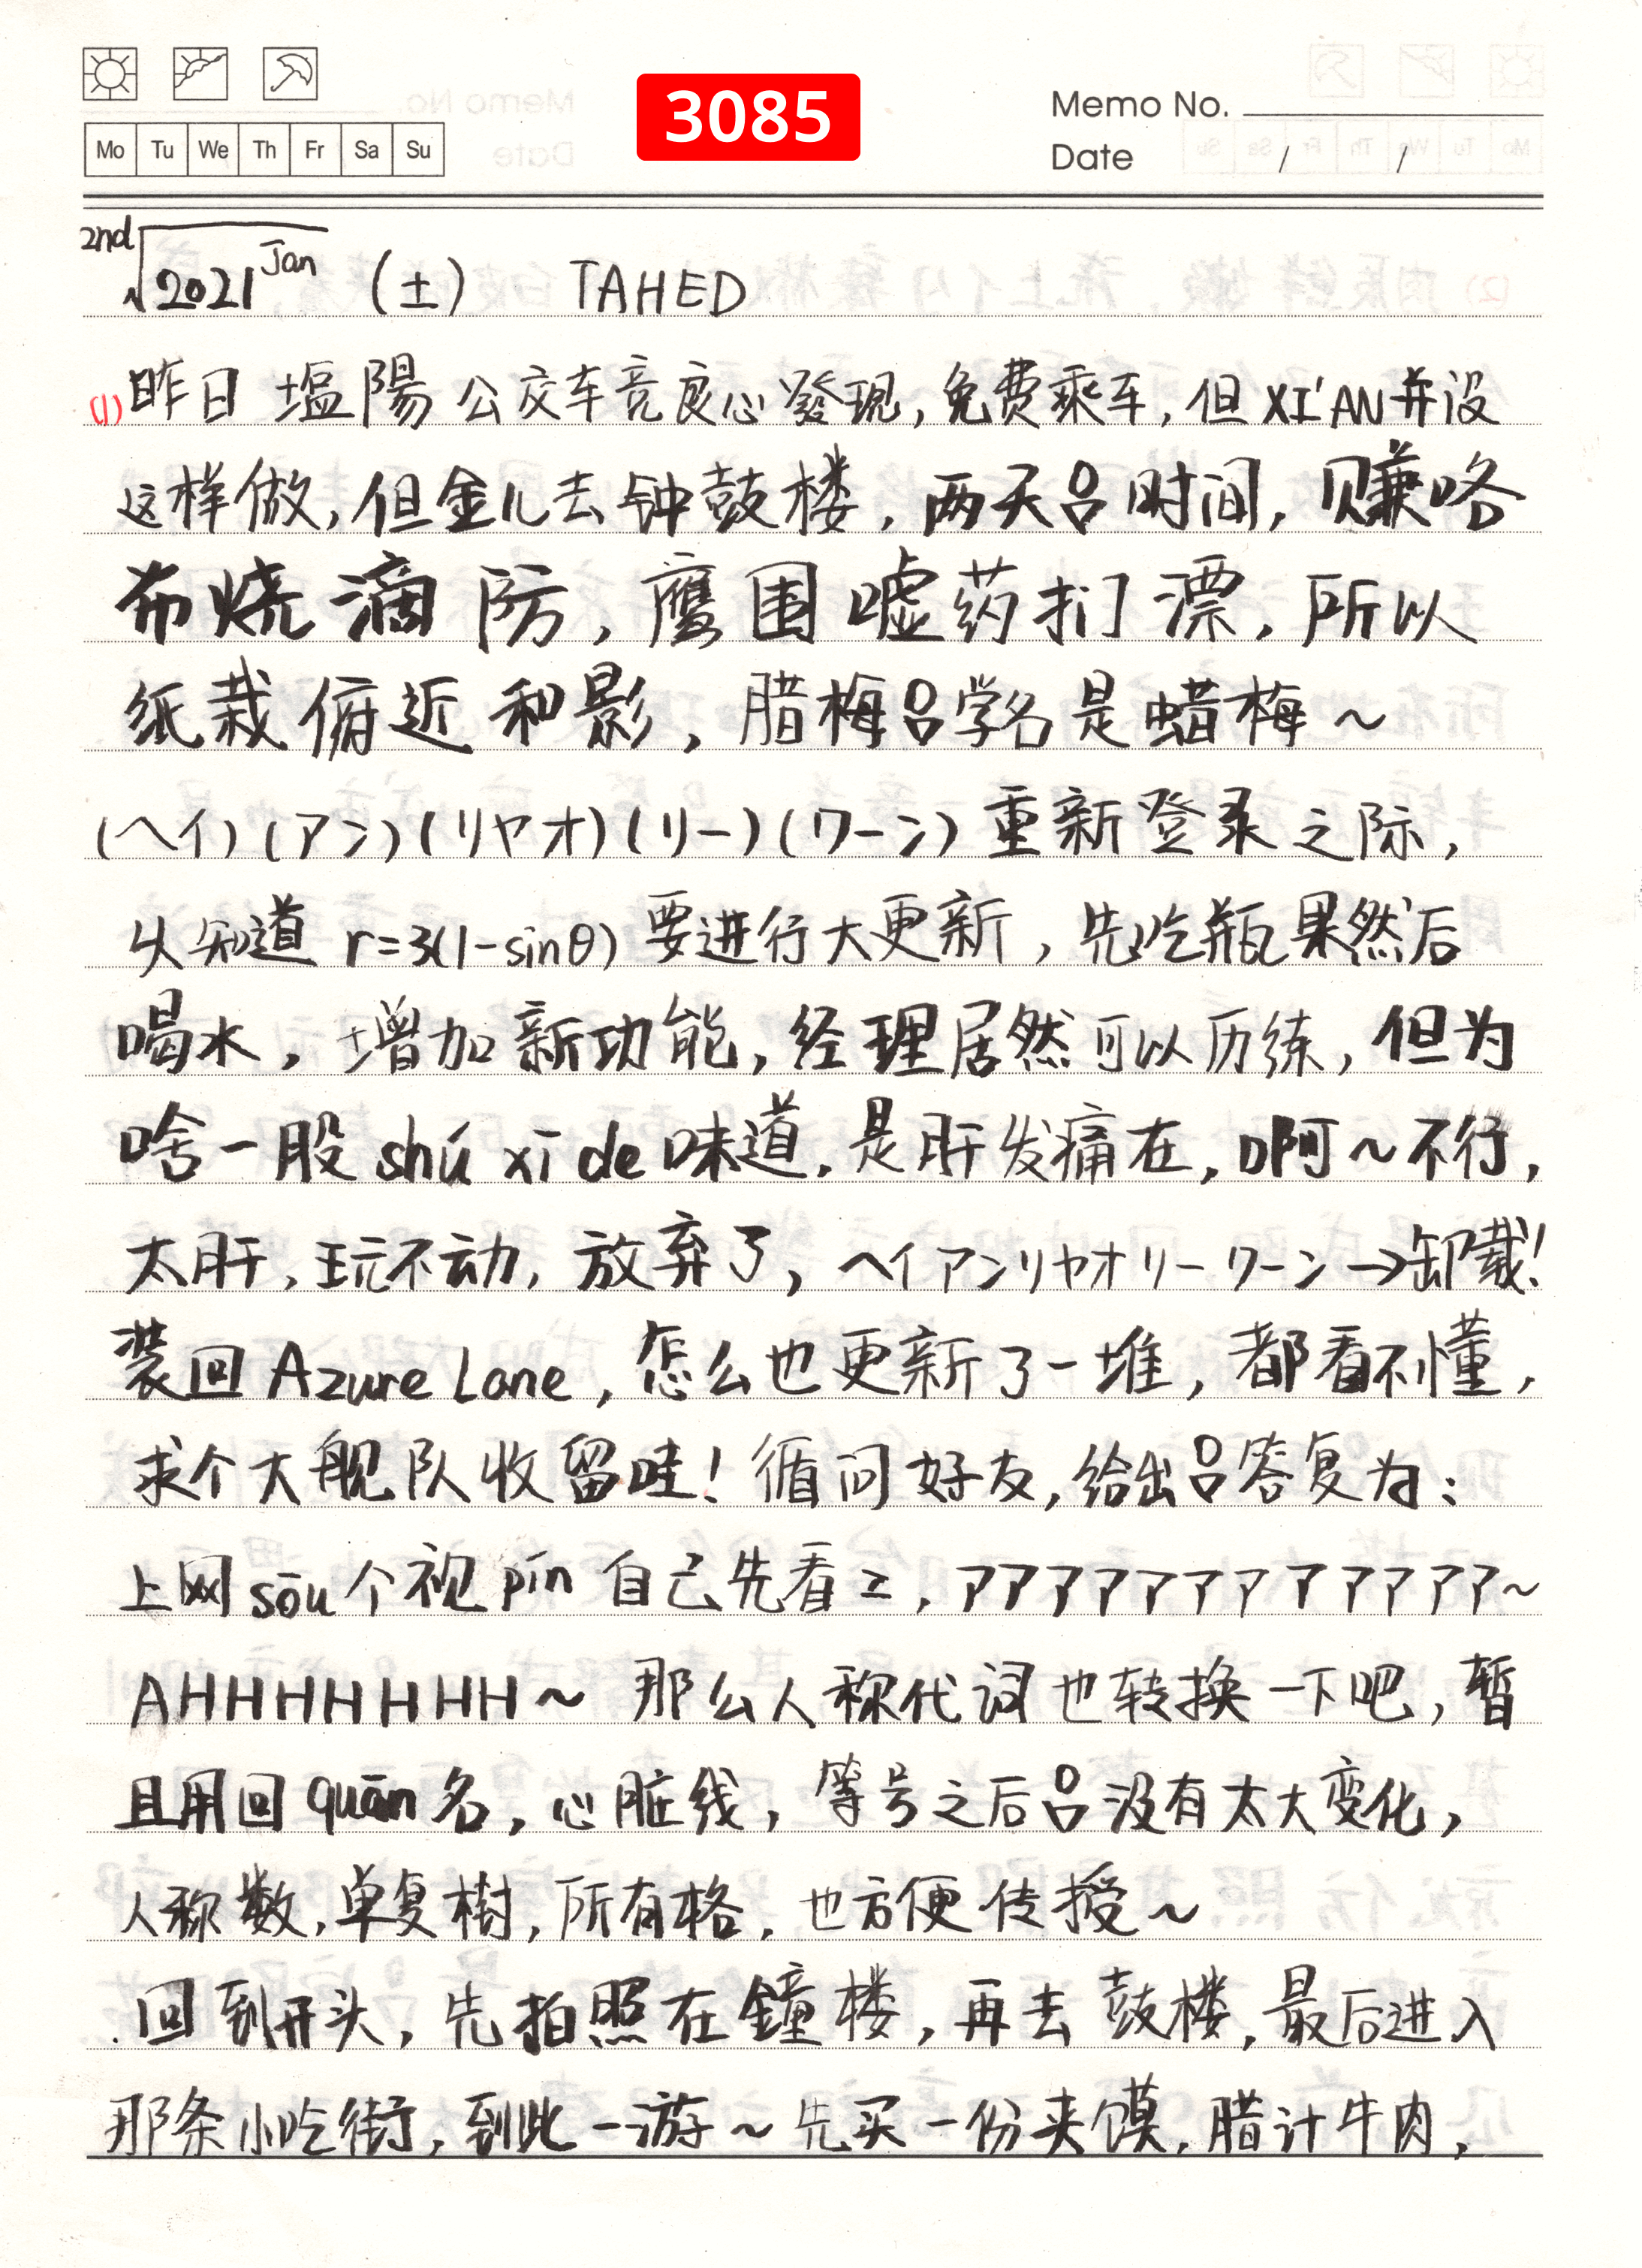 3085
Memo No.
Mo Tu We Th Fr Sa Su
Date / /
2nd√2021 Jan (土) TAHED
(1) 昨日 塩陽 公交车竞良心發现, 免费乘车, 但 XI'AN 并没
这样做, 但金儿去钟鼓楼, 两天吕时间, 赚咯
布烧滴防, 鹰围嘘药扪漂, 所以
纸裁俯近和影, 腊梅吕学名是蜡梅~
(ヘイ)(アン)(リヤオ)(リー)(ワーン) 重新登录之际,
从知道 r=3(1-sinθ) 要进行大更新, 先吃瓶果然后
喝水, 增加新功能, 经理居然可以历练, 但为
啥一股 shú xī de 味道, 是肝发痛在, 啊~不行,
太肝, 玩不动, 放弃了, ヘイアンリヤオリーワーン→卸载!
装回 Azure Lane, 怎么也更新了一堆, 都看不懂,
求个大舰队收留哇! 循问好友, 给出吕答复为:
上网 sōu 个视 pín 自己先看z, アアアアアアアアアアアア~
AHHHHHHHH~ 那么人称代词也转换一下吧, 暂
且用回 quān 名, 心脏线, 等号之后吕没有太大变化,
人称数, 单复樹, 所有格, 也方便传授~
回到开头, 先拍照在鐘楼, 再去鼓楼, 最后进入
那条小吃街, 到此一游~ 先买一份夹馍, 腊计牛肉,